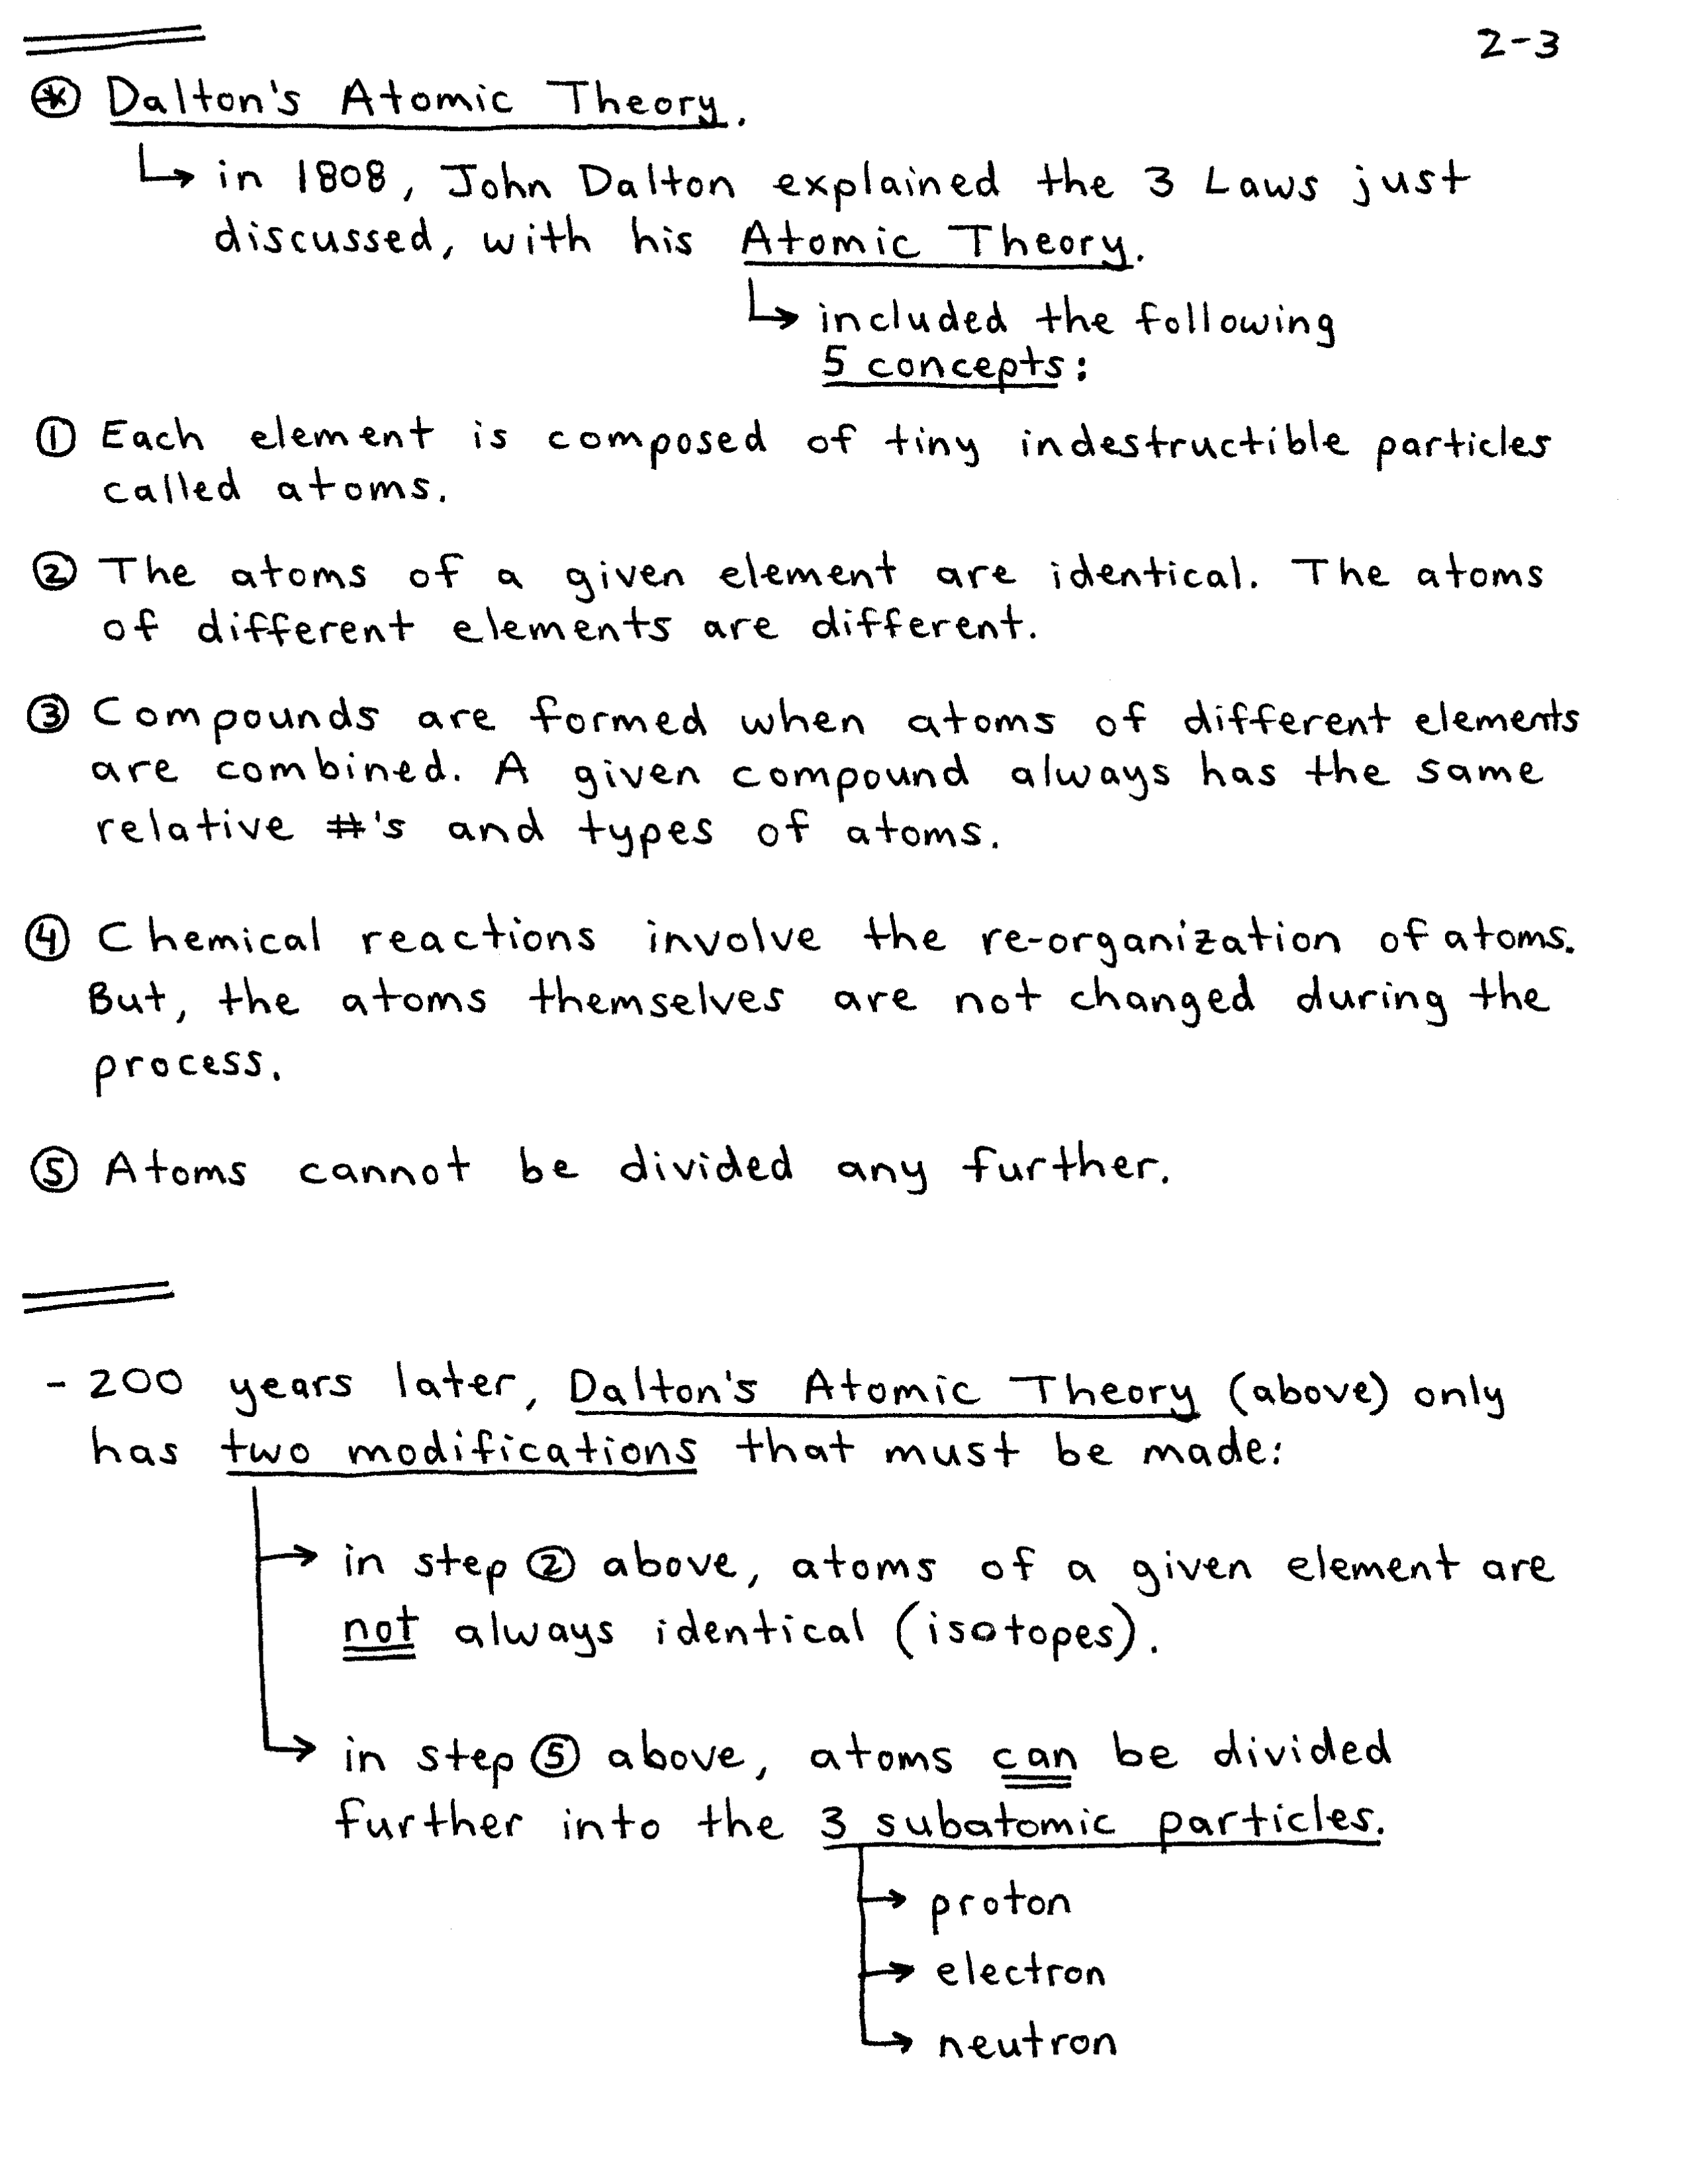 2-3
⊛ Dalton's Atomic Theory.
↳ in 1808, John Dalton explained the 3 Laws just
discussed, with his Atomic Theory.
↳ included the following
5 concepts:
① Each element is composed of tiny indestructible particles
called atoms.
② The atoms of a given element are identical. The atoms
of different elements are different.
③ Compounds are formed when atoms of different elements
are combined. A given compound always has the same
relative #'s and types of atoms.
④ Chemical reactions involve the re-organization of atoms.
But, the atoms themselves are not changed during the
process.
⑤ Atoms cannot be divided any further.
- 200 years later, Dalton's Atomic Theory (above) only
has two modifications that must be made:
→ in step ② above, atoms of a given element are
not always identical (isotopes).
→ in step ⑤ above, atoms can be divided
further into the 3 subatomic particles.
→ proton
→ electron
→ neutron